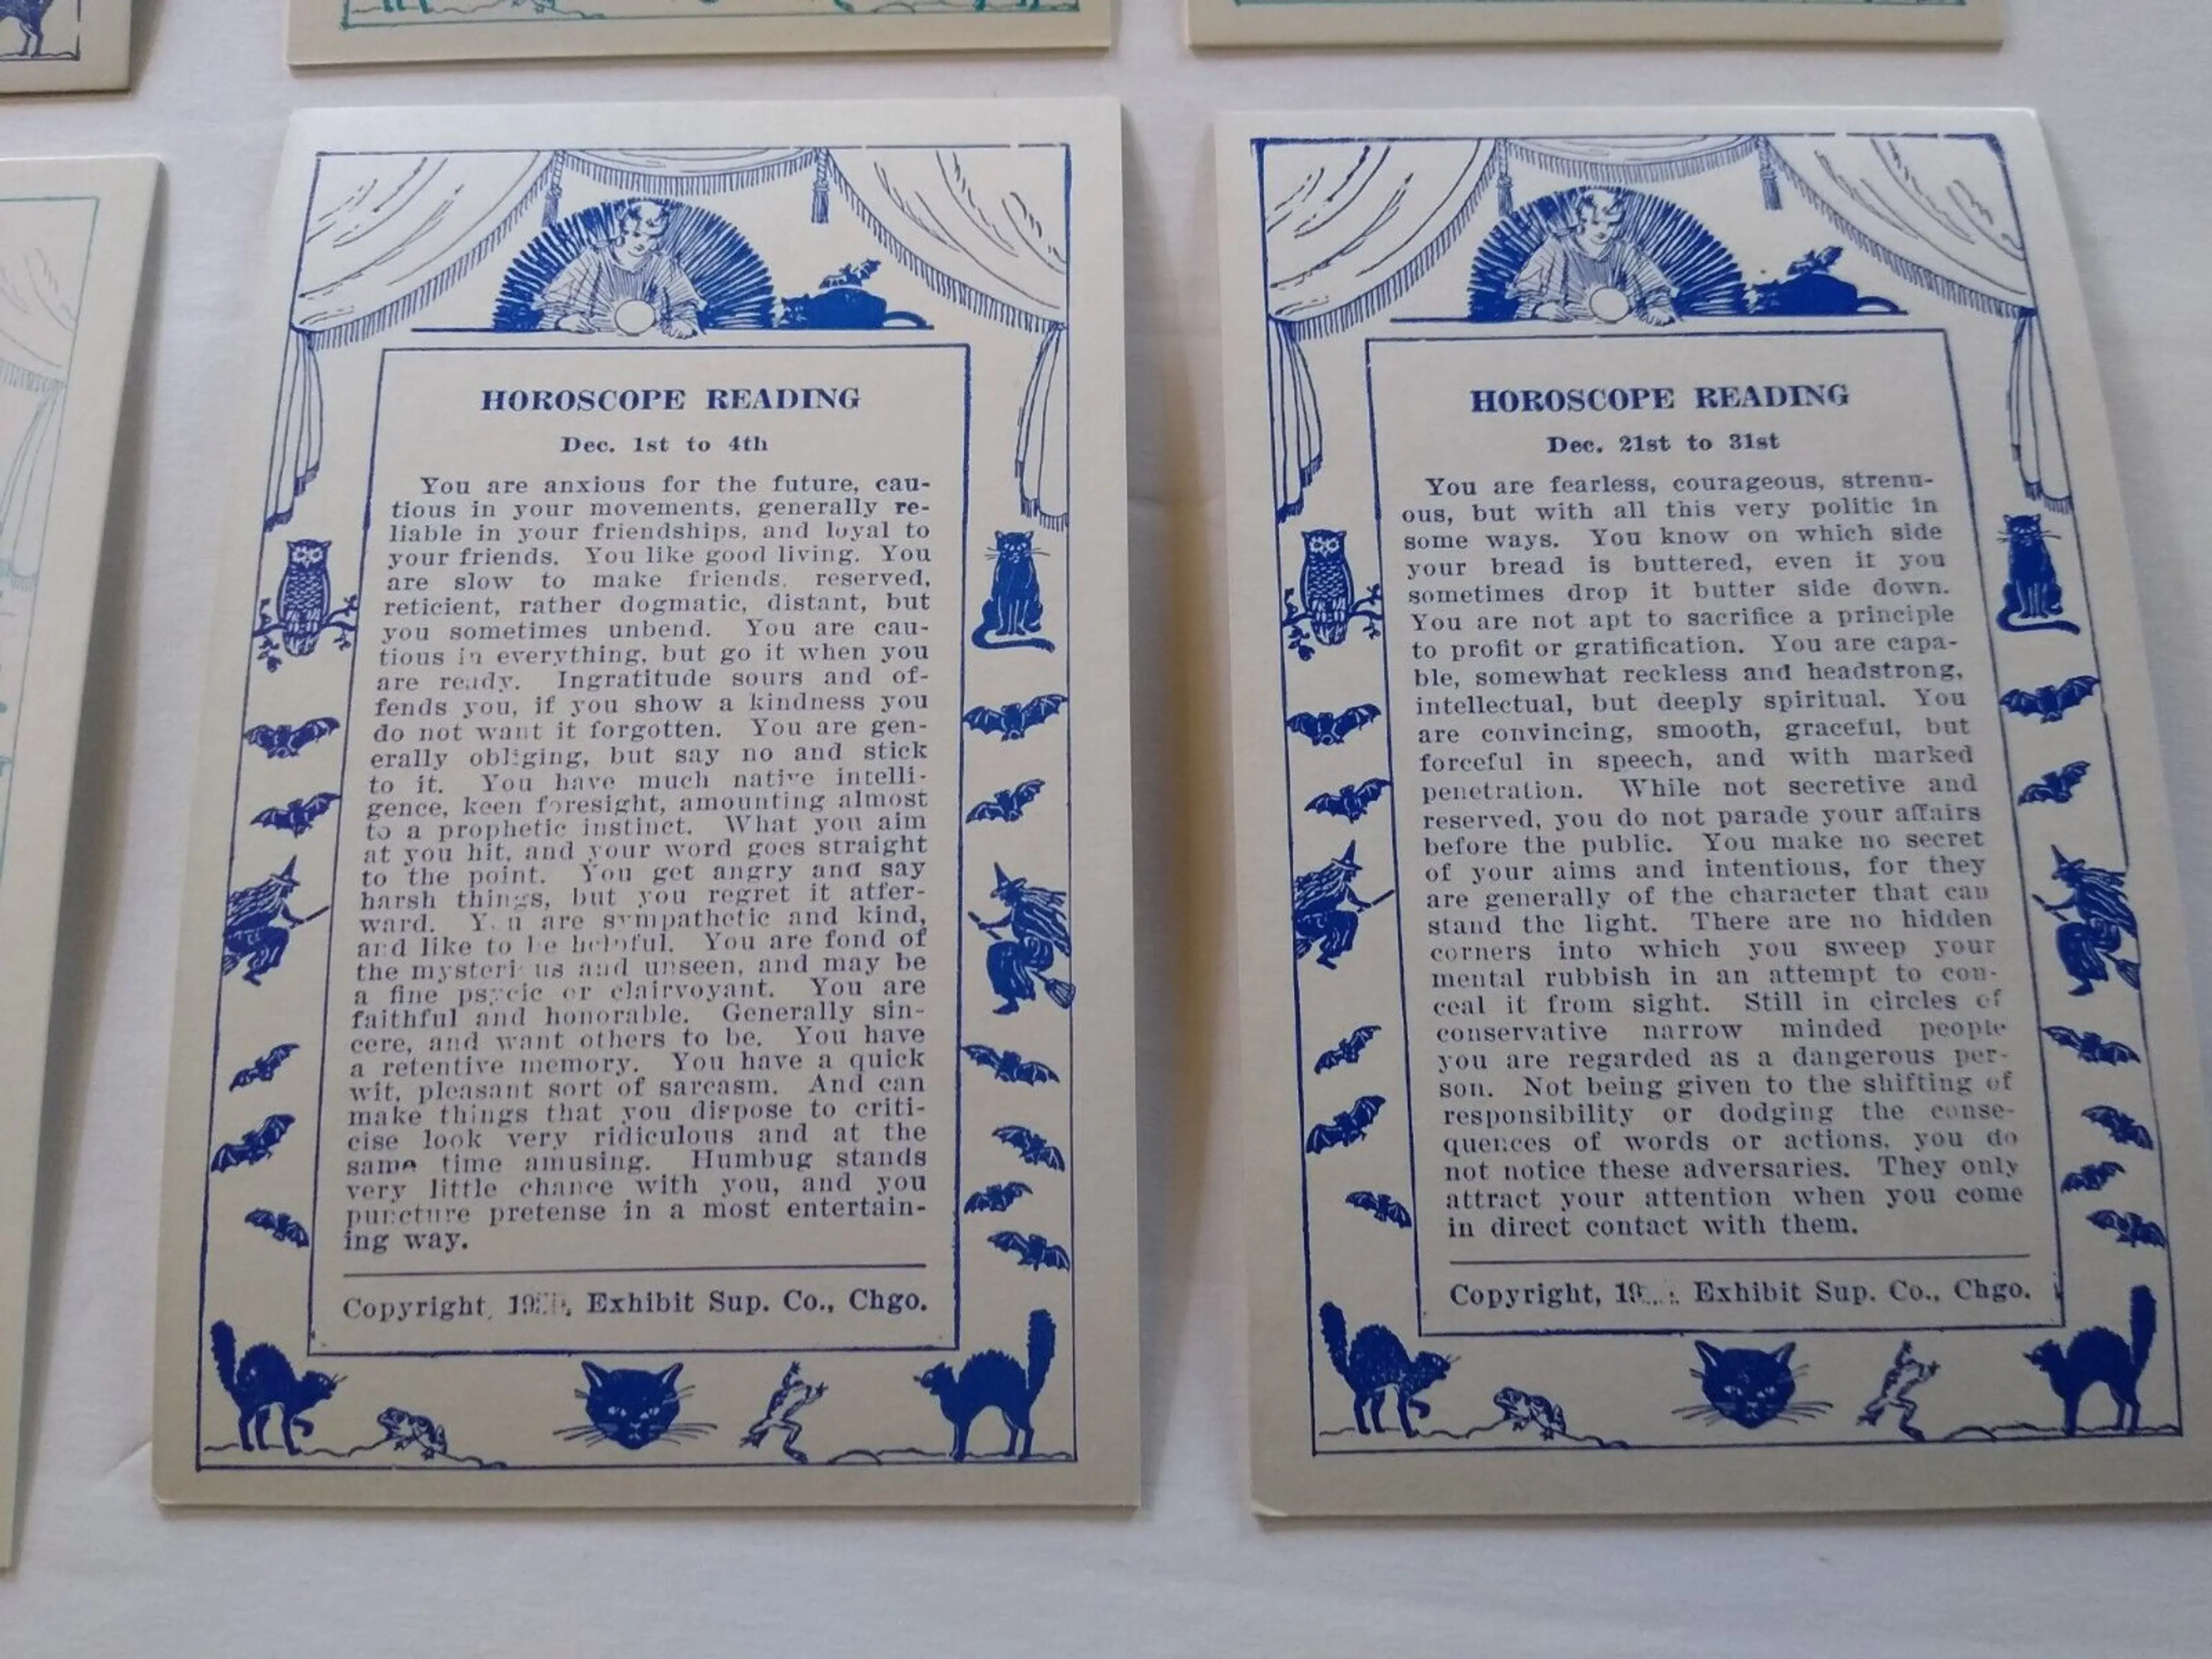 HOROSCOPE READING
Dec. 1st to 4th
You are anxious for the future, cau-
tious in your movements, generally re-
liable in your friendships, and loyal to
your friends. You like good living. You
are slow to make friends, reserved,
reticient, rather dogmatic, distant, but
you sometimes unbend. You are cau-
tious in everything, but go it when you
are ready. Ingratitude sours and of-
fends you, if you show a kindness you
do not want it forgotten. You are gen-
erally obliging, but say no and stick
to it. You have much native intelli-
gence, keen foresight, amounting almost
to a prophetic instinct. What you aim
at you hit, and your word goes straight
to the point. You get angry and say
harsh things, but you regret it after-
ward. You are sympathetic and kind,
and like to be helpful. You are fond of
the mysterious and unseen, and may be
a fine psycic or clairvoyant. You are
faithful and honorable. Generally sin-
cere, and want others to be. You have
a retentive memory. You have a quick
wit, pleasant sort of sarcasm. And can
make things that you dispose to criti-
cise look very ridiculous and at the
same time amusing. Humbug stands
very little chance with you, and you
puncture pretense in a most entertain-
ing way.
Copyright, Exhibit Sup. Co., Chgo.
HOROSCOPE READING
Dec. 21st to 31st
You are fearless, courageous, strenu-
ous, but with all this very politic in
some ways. You know on which side
your bread is buttered, even if you
sometimes drop it butter side down.
You are not apt to sacrifice a principle
to profit or gratification. You are capa-
ble, somewhat reckless and headstrong,
intellectual, but deeply spiritual. You
are convincing, smooth, graceful, but
forceful in speech, and with marked
penetration. While not secretive and
reserved, you do not parade your affairs
before the public. You make no secret
of your aims and intentions, for they
are generally of the character that can
stand the light. There are no hidden
corners into which you sweep your
mental rubbish in an attempt to con-
ceal it from sight. Still in circles of
conservative narrow minded people
you are regarded as a dangerous per-
son. Not being given to the shifting of
responsibility or dodging the conse-
quences of words or actions, you do
not notice these adversaries. They only
attract your attention when you come
in direct contact with them.
Copyright, Exhibit Sup. Co., Chgo.